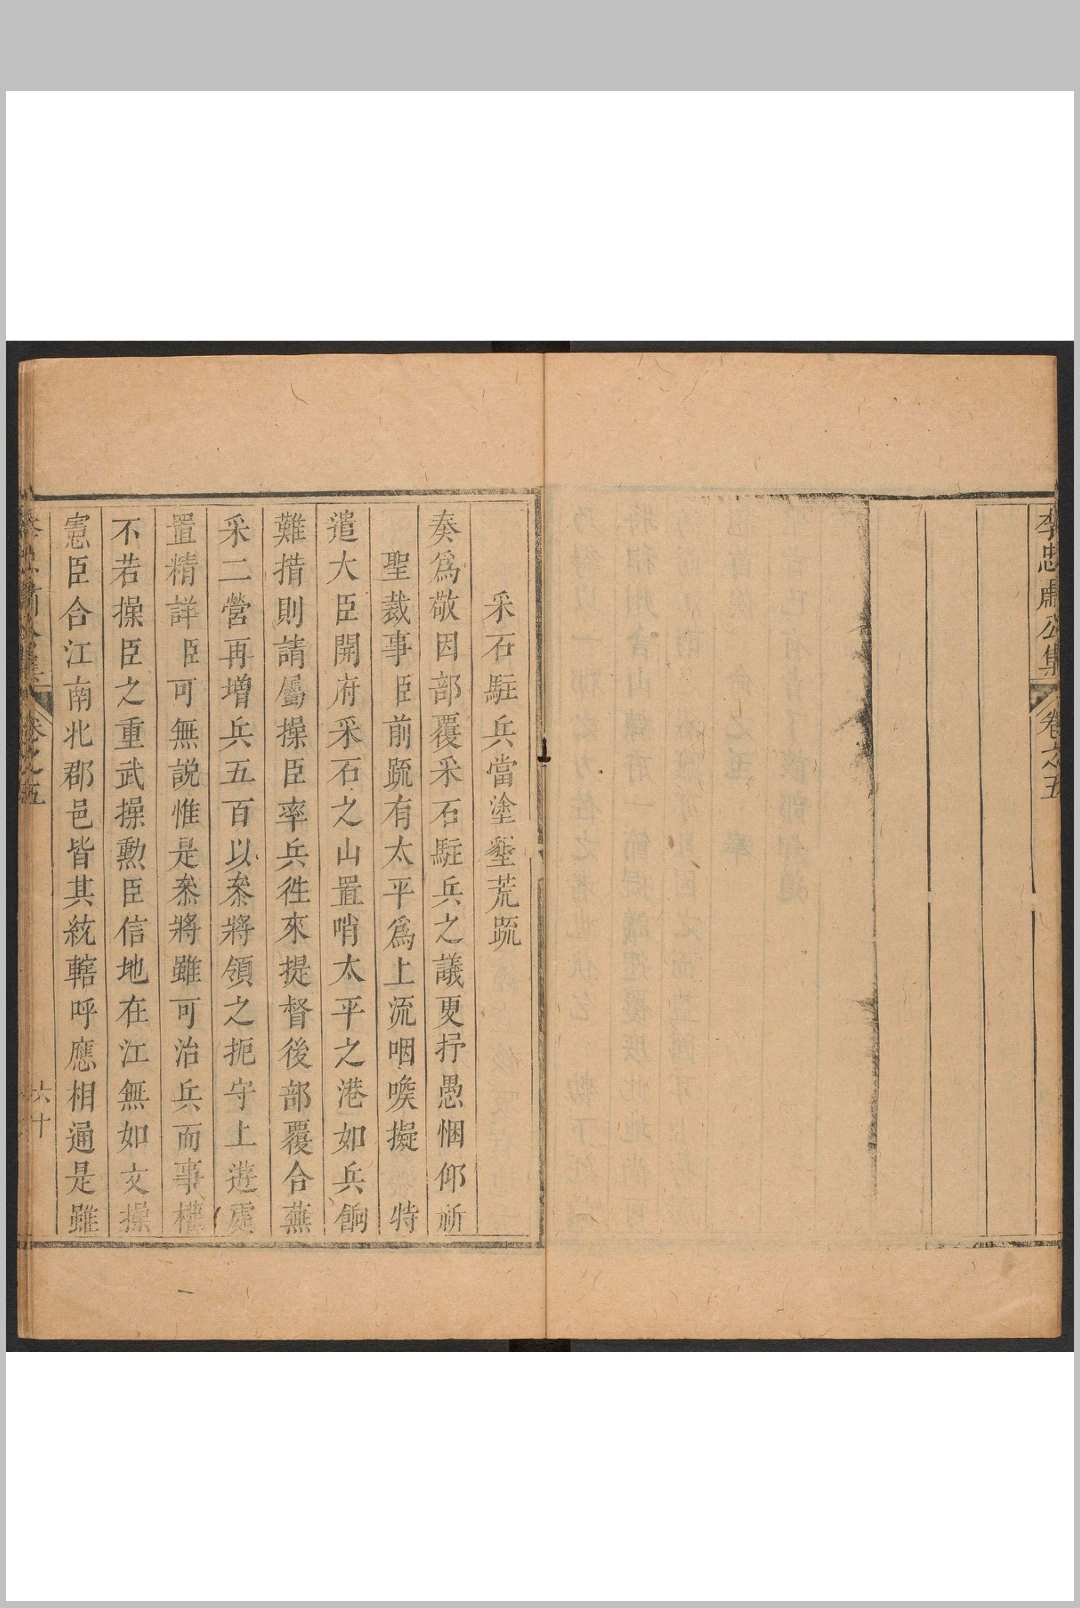 李忠肅公集 卷之五
采石駐兵當塗墾荒疏
奏爲敬因部覆采石駐兵之議更抒愚悃仰祈
聖裁事臣前疏有太平爲上流咽喉擬 特
遣大臣開府采石之山置哨太平之港如兵餉
難措則請屬操臣率兵徃來提督後部覆合蕪
采二營再增兵五百以叅將領之扼守上遊處
置精詳臣可無説惟是叅將雖可治兵而事權
不若操臣之重武操勲臣信地在江無如文操
憲臣合江南北郡邑皆其統轄呼應相通是雖
卷之五
六十